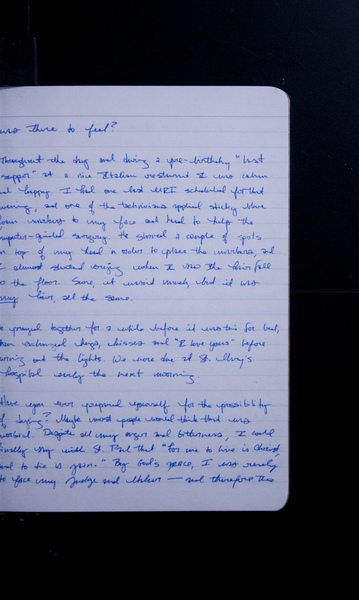 was there to feel?
Throughout the day and during a pre-birthday "last
supper" at a nice Italian restaurant I was calm
and happy. I had one last MRI scheduled for that
evening, and one of the technicians applied sticky
markers to my face and head to help the
computer-guided surgery. He shaved a couple of spots
on top of my head in order to place the markers, and
I almost started crying when I saw the hair fall
to the floor. Sure, it wasn't much, but it was
my hair, all the same.
We prayed together for a while before it was time for bed,
then exchanged hugs, kisses and "I love yous" before
turning out the lights. We were due at St. Mary's
Hospital early the next morning.
Have you ever prepared yourself for the possibility
of dying? Maybe most people would think that was
morbid. Despite all my anger and bitterness, I could
finally say with St. Paul that "for me to live is Christ,
and to die is gain." By God's grace, I was ready
to face my Judge and Maker — and therefore the